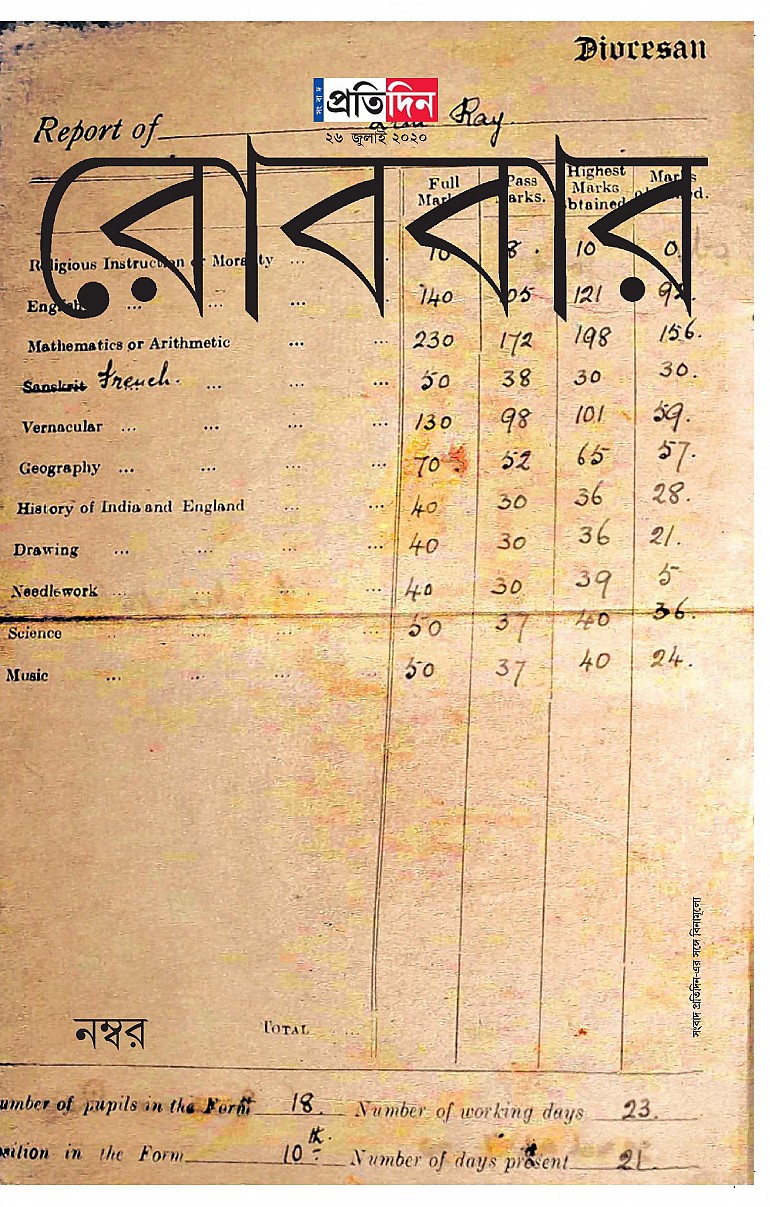 Diocesan
সংবাদ প্রতিদিন
Report of Ray.
২৬ জুলাই ২০২০
রোববার
Full Marks Pass Marks. Highest Marks obtained Marks obtained.
Religious Instruction or Morality ... ... 10 8. 10 0.
English ... ... ... 140 105 121 92.
Mathematics or Arithmetic ... ... 230 172 198 156.
Sanskrit French. ... ... ... 50 38 30 30.
Vernacular ... ... ... ... 130 98 101 59.
Geography ... ... ... ... 70 52 65 57.
History of India and England ... ... 40 30 36 28.
Drawing ... ... ... ... 40 30 36 21.
Needlework ... ... ... ... 40 30 39 5
Science ... ... ... ... 50 37 40 36.
Music ... ... ... ... 50 37 40 24.
সংবাদ প্রতিদিন-এর সঙ্গে বিনামূল্যে
নম্বর
TOTAL ...
umber of pupils in the Form 18. Number of working days 23.
osition in the Form 10th. Number of days present 21.